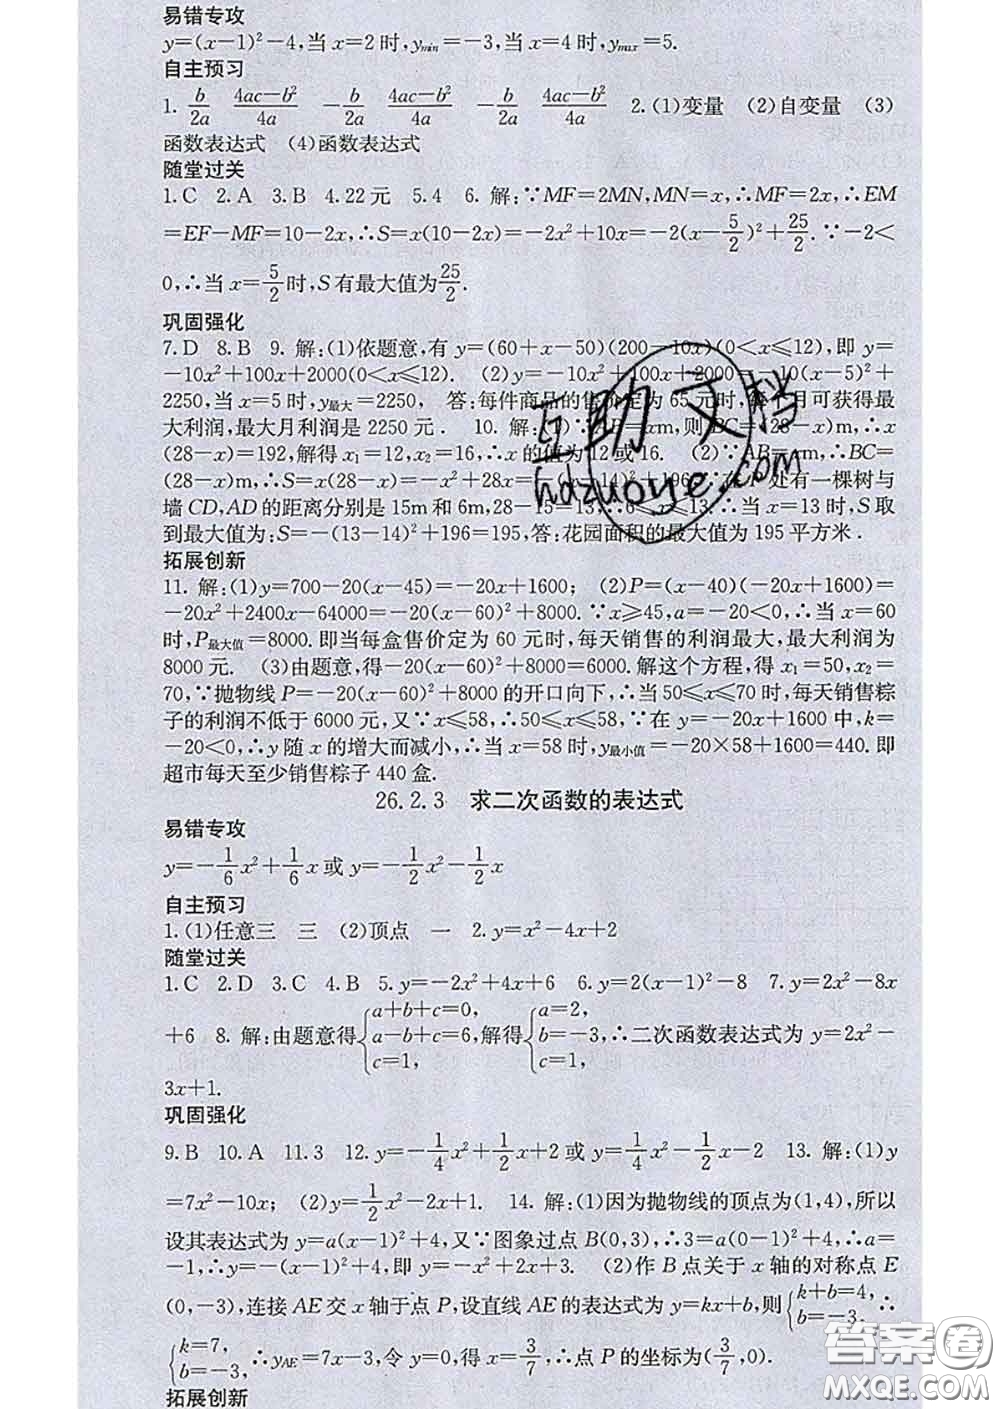 易错专攻
y=(x-1)²-4,当 x=2 时,y_min=-3,当 x=4 时,y_max=5.
自主预习
1. b/2a  (4ac-b²)/4a  -b/2a  (4ac-b²)/4a  -b/2a  (4ac-b²)/4a  2.(1)变量 (2)自变量 (3)
函数表达式 (4)函数表达式
随堂过关
1.C 2.A 3.B 4.22元 5.4 6. 解:∵MF=2MN,MN=x,∴MF=2x,∴EM
=EF-MF=10-2x,∴S=x(10-2x)=-2x²+10x=-2(x-5/2)²+25/2.∵-2<
0,∴当 x=5/2时,S有最大值为25/2.
巩固强化
7.D 8.B 9. 解:(1)依题意,有 y=(60+x-50)(200-10x)(0<x≤12),即 y=
-10x²+100x+2000(0<x≤12). (2)y=-10x²+100x+2000=-10(x-5)²+
2250,当 x=5 时,y最大=2250, 答:每件商品的售价定为 65 元时,每个月可获得最
大利润,最大月利润是 2250 元. 10. 解:(1)∵AB=xm,则 BC=(28-x)m,∴x
(28-x)=192,解得 x₁=12,x₂=16,∴x的值为12或16. (2)∵AB=xm,∴BC=
(28-x)m,∴S=x(28-x)=-x²+28x=-(x-14)²+196,∵在 P 处有一棵树与
墙 CD,AD 的距离分别是 15m 和 6m,28-15=13,∴6≤x≤13.∴当 x=13 时,S 取
到最大值为:S=-(13-14)²+196=195,答:花园面积的最大值为 195 平方米.
拓展创新
11. 解:(1)y=700-20(x-45)=-20x+1600; (2)P=(x-40)(-20x+1600)=
-20x²+2400x-64000=-20(x-60)²+8000.∵x≥45,a=-20<0,∴当 x=60
时,P最大值=8000.即当每盒售价定为 60 元时,每天销售的利润最大,最大利润为
8000元. (3)由题意,得-20(x-60)²+8000=6000.解这个方程,得 x₁=50,x₂=
70,∵抛物线 P=-20(x-60)²+8000 的开口向下,∴当 50≤x≤70 时,每天销售粽
子的利润不低于 6000 元,又∵x≤58,∴50≤x≤58,∵在 y=-20x+1600 中,k=
-20<0,∴y 随 x 的增大而减小,∴当 x=58 时,y最小值=-20×58+1600=440.即
超市每天至少销售粽子 440 盒.
26.2.3 求二次函数的表达式
易错专攻
y=-1/6x²+1/6x或 y=-1/2x²-1/2x
自主预习
1.(1)任意三 三 (2)顶点 一 2.y=x²-4x+2
随堂过关
1.C 2.D 3.C 4.B 5.y=-2x²+4x+6 6.y=2(x-1)²-8 7.y=2x²-8x
+6 8. 解:由题意得{a+b+c=0, a-b+c=6, c=1,解得{a=2, b=-3, c=1,∴二次函数表达式为 y=2x²-
3x+1.
巩固强化
9.B 10.A 11.3 12.y=-1/4x²+1/2x+2或 y=1/4x²-1/2x-2 13. 解:(1)y
=7x²-10x; (2)y=1/2x²-2x+1. 14. 解:(1)因为抛物线的顶点为(1,4),所以
设其表达式为 y=a(x-1)²+4,又∵图象过点 B(0,3),∴3=a(0-1)²+4,∴a=
-1,∴y=-(x-1)²+4,即 y=-x²+2x+3. (2)作 B 点关于 x 轴的对称点 E
(0,-3),连接 AE 交 x 轴于点 P,设直线 AE 的表达式为 y=kx+b,则{k+b=4, b=-3. ∴
{k=7, b=-3, ∴y_AE=7x-3,令 y=0,得 x=3/7,∴点 P 的坐标为(3/7,0).
拓展创新
互助文档
hdzuoye.com
答案圈
MXQE.COM